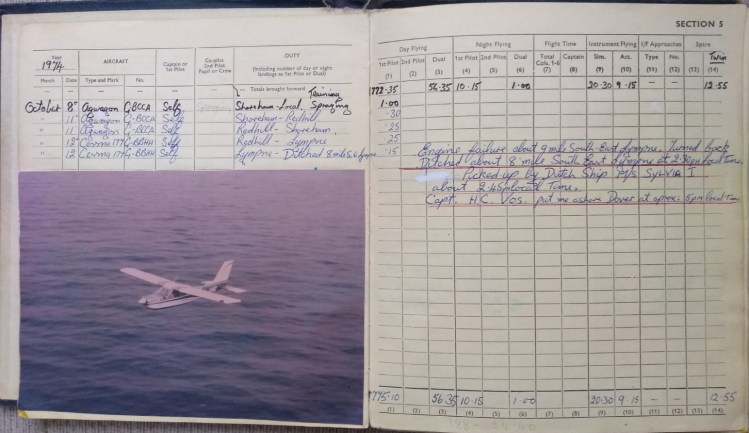 SECTION 5
Year 1974
AIRCRAFT
Captain or 1st Pilot
Co-pilot 2nd Pilot Pupil or Crew
DUTY
(Including number of day or night landings as 1st Pilot or Dual)
Month Date Type and Mark No.
Totals brought forward Training
October 8" Agwagon G-BCCA Self Shoreham-Local. Spraying
" 11" Agwagon G-BCCA Self Shoreham-Redhill
" 11 Agwagon G-BCCA Self Redhill-Shoreham.
" 12" Cessna 177 G-BBHH Self Redhill-Lympne
" 12 Cessna 177 G-BBHH Self Lympne-Ditched 8 mile S.E. Lympne
Day Flying Night Flying Flight Time Instrument Flying I/F Approaches Spare
1st Pilot 2nd Pilot Dual 1st Pilot 2nd Pilot Dual Total Cols. 1-6 Captain Sim. Act. Type No. Twin
(1) (2) (3) (4) (5) (6) (7) (8) (9) (10) (11) (12) (13) (14)
772·35 56·35 10·15 1·00 20·30 9·15 — — 12·55
1·00
·30
·25
·25
·15 Engine failure about 9 mile South-East Lympne. Turned back
Ditched about 8 mile South East Lympne at 2·30pm local time.
Picked up by Dutch Ship M/S SYLVIA I
about 2·45pm local time.
Capt. H.C. Vos. put me ashore Dover at aprox. 5pm local time
775·10 56·35 10·15 1·00 20·30 9·15 — — 12·55
(1) (2) (3) (4) (5) (6) (7) (8) (9) (10) (11) (12) (13) (14)